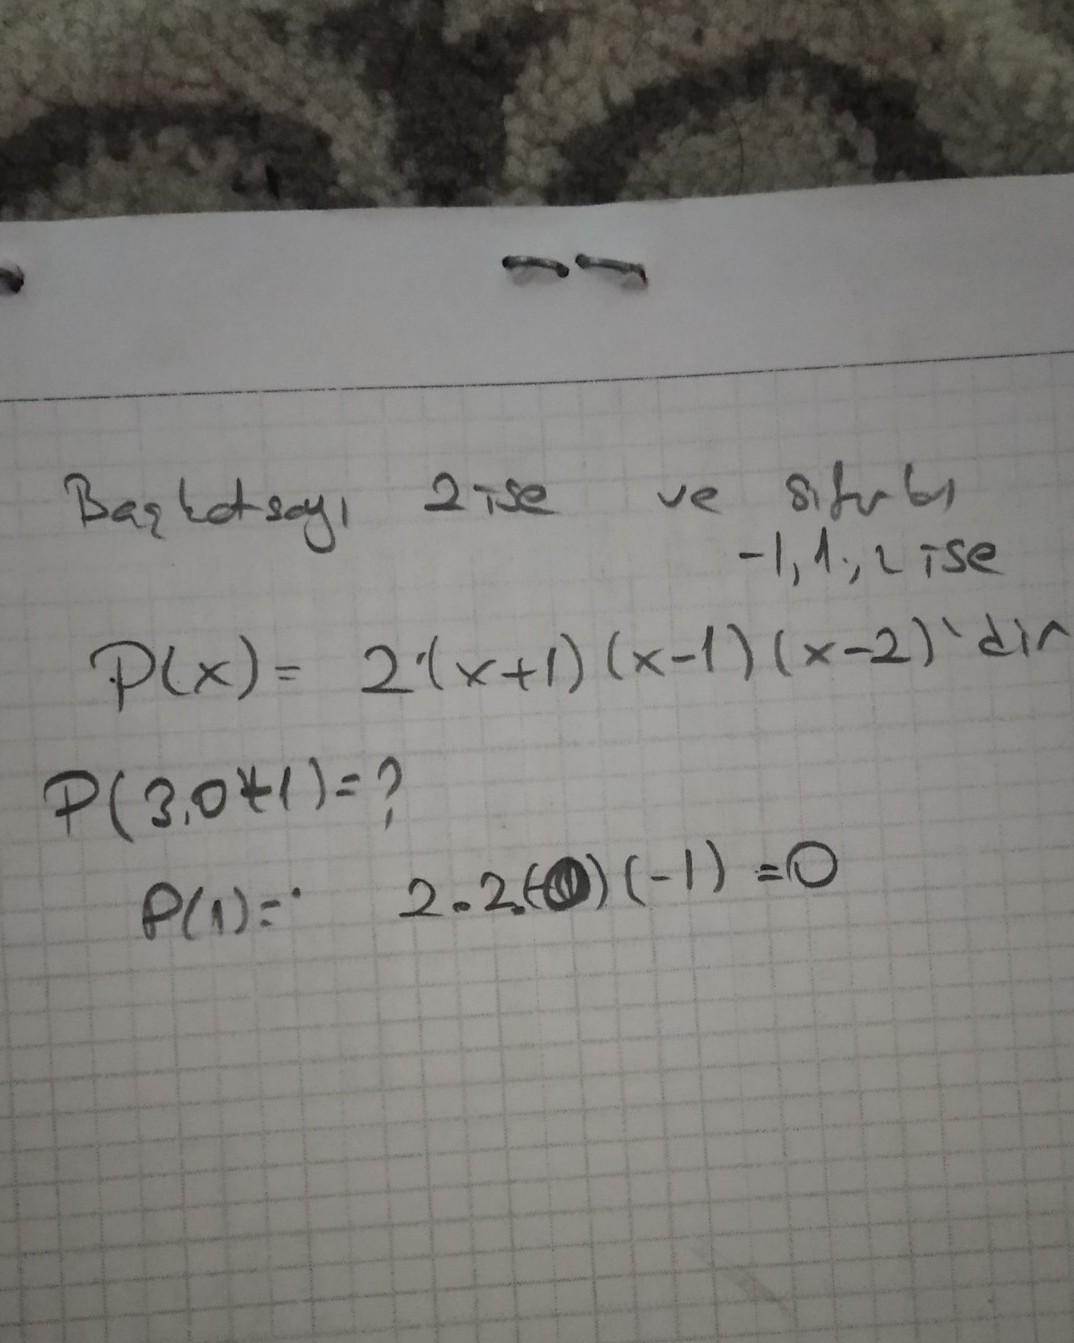 Başkatsayı 2 ise ve sıfırları
-1, 1, 2 ise
P(x) = 2·(x+1)(x-1)(x-2)'dir
P(3.0+1)=?
P(1)= 2.2.(0)(-1) = 0